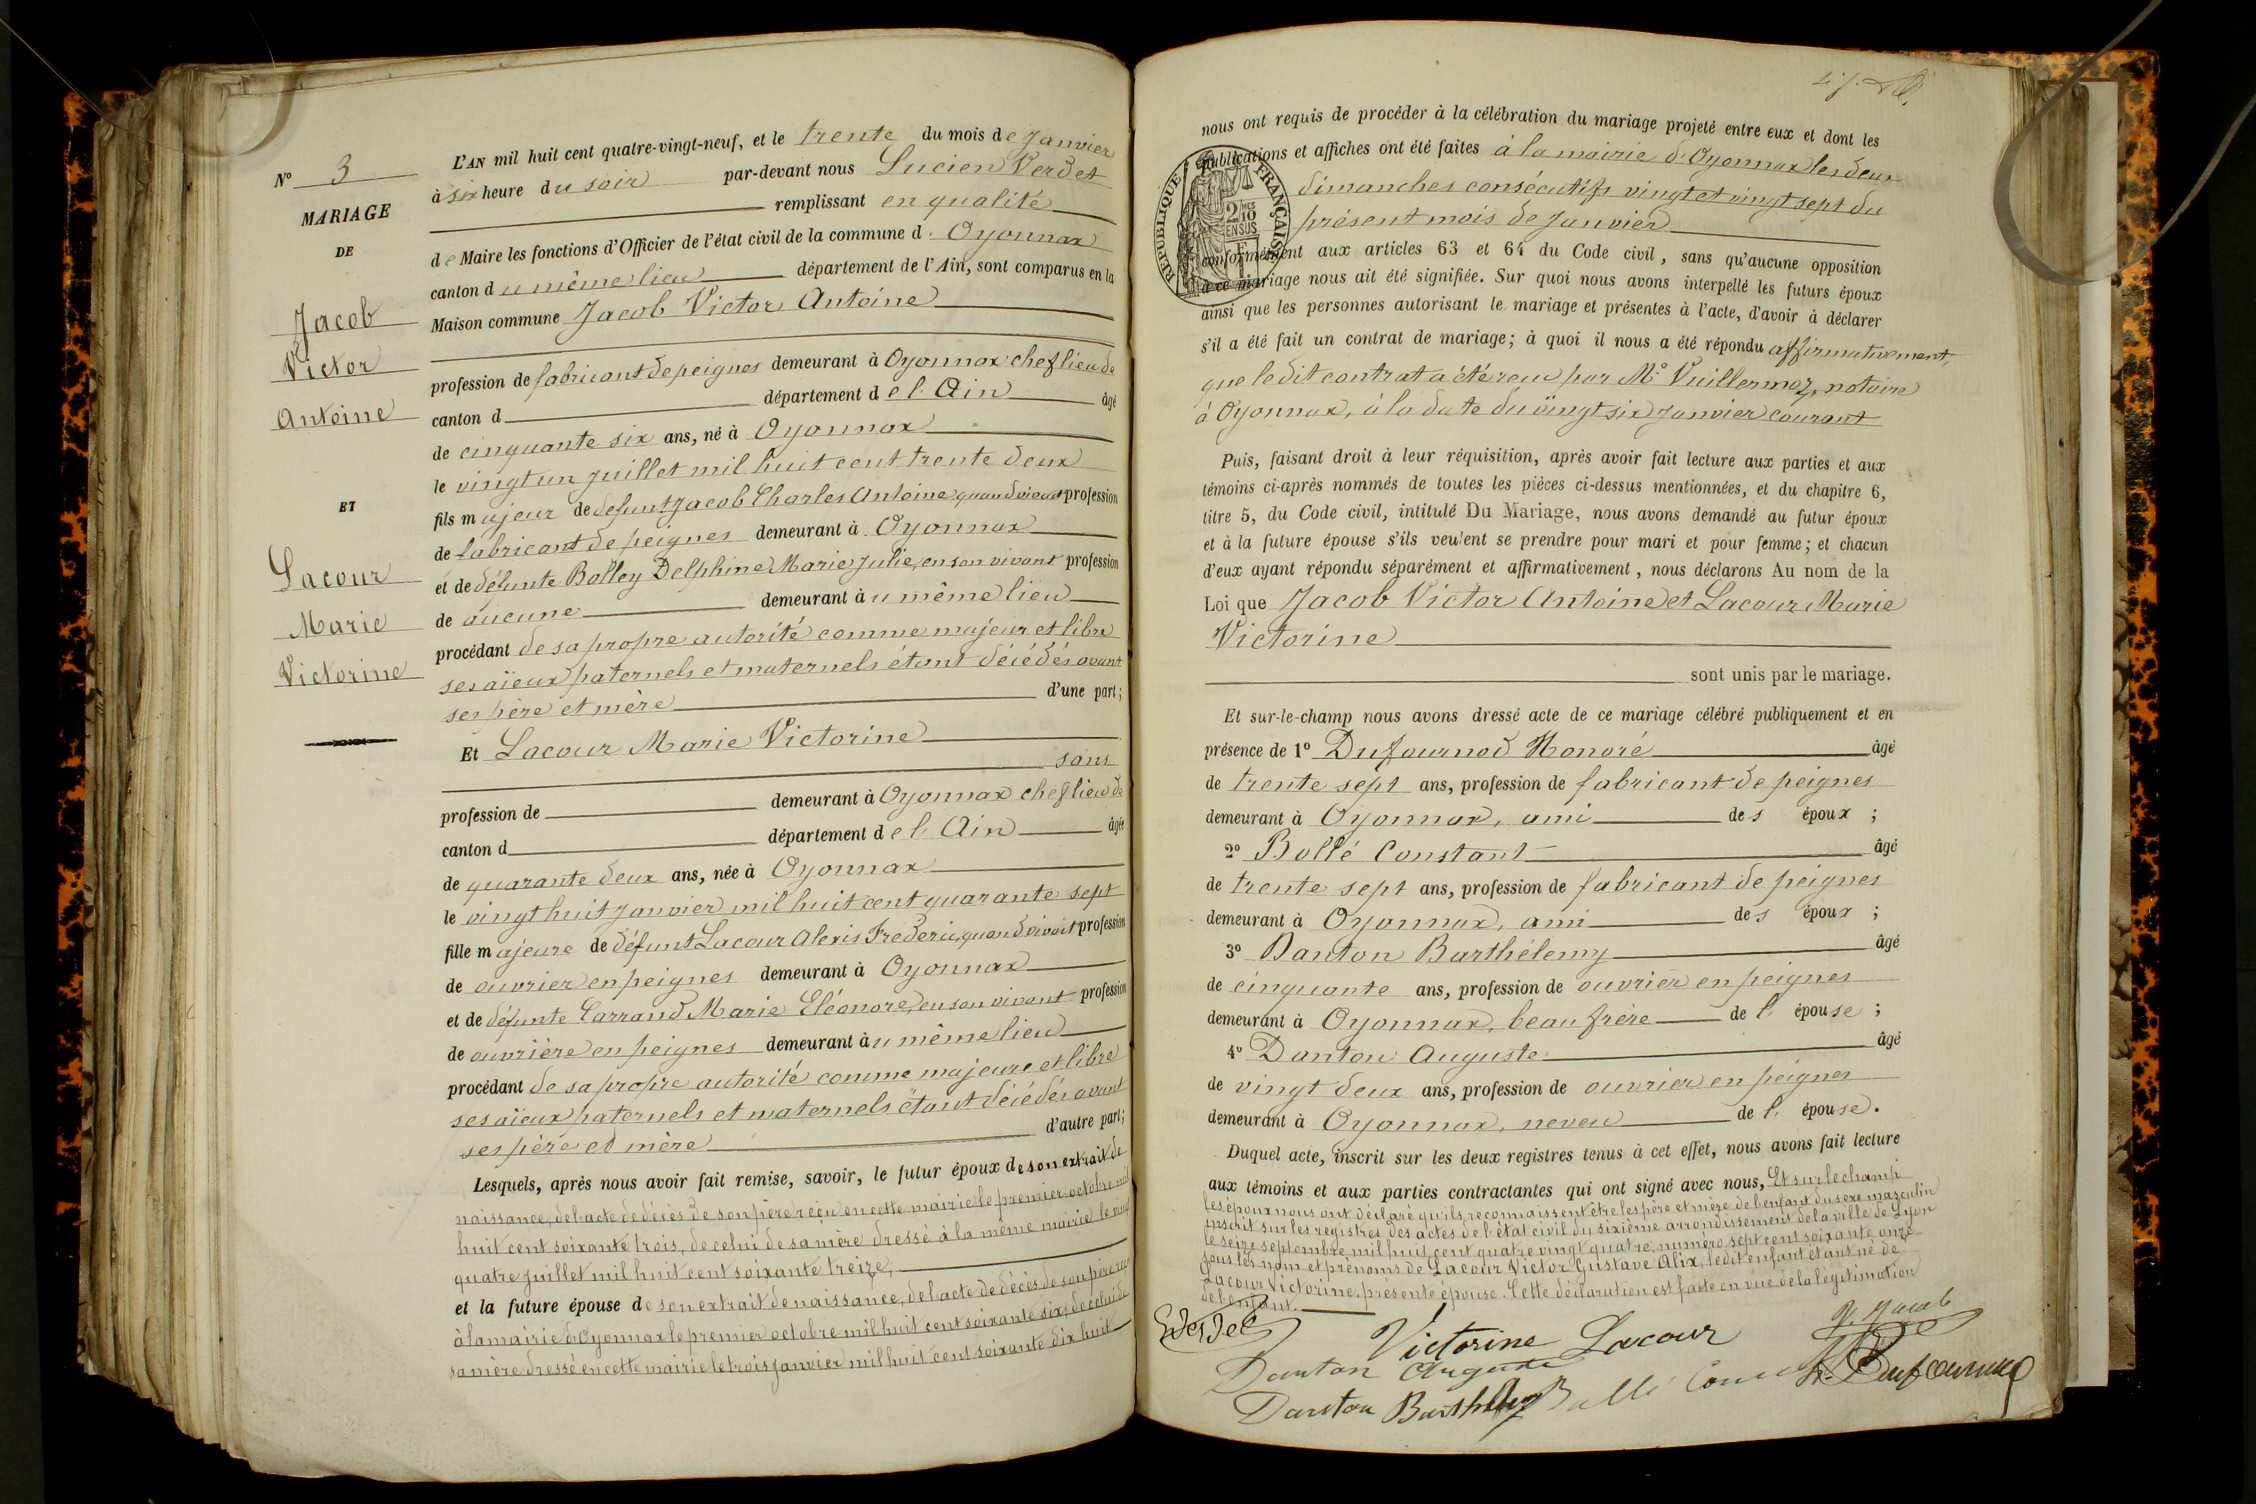 N° 3
MARIAGE
DE
Jacob
Victor
Antoine
ET
Lacour
Marie
Victorine
L'AN mil huit cent quatre-vingt-neuf, et le trente du mois de Janvier
à six heure du soir par-devant nous Lucien Verdet
remplissant en qualité
de Maire les fonctions d'Officier de l'état civil de la commune d' Oyonnax
canton du même lieu département de l'Ain, sont comparus en la
Maison commune Jacob Victor Antoine
profession de fabricant de peignes demeurant à Oyonnax chef lieu de
canton d département de l'Ain âgé
de cinquante six ans, né à Oyonnax
le vingt un juillet mil huit cent trente deux
fils majeur de defunt Jacob Charles Antoine, quand vivait profession
de fabricant de peignes demeurant à Oyonnax
et de défunte Bolley Delphine Marie Julie, en son vivant profession
de aucune demeurant au même lieu
procédant de sa propre autorité comme majeur et libre
ses aïeux paternels et maternels étant décédés avant
ses père et mère d'une part;
Et Lacour Marie Victorine
sans
profession de demeurant à Oyonnax chef lieu de
canton d département de l'Ain âgée
de quarante deux ans, née à Oyonnax
le vingt huit janvier mil huit cent quarante sept
fille majeure de défunt Lacour Alexis Frederic, quand vivait profession
de ouvrier en peignes demeurant à Oyonnax
et de défunte Carrand Marie Eléonore, en son vivant profession
de ouvrière en peignes demeurant au même lieu
procédant de sa propre autorité comme majeure et libre
ses aïeux paternels et maternels étant décédés avant
ses père et mère d'autre part;
Lesquels, après nous avoir fait remise, savoir, le futur époux de son extrait de
naissance, de l'acte de décès de son père reçu en cette mairie le premier octobre mil
huit cent soixante trois, de celui de sa mère dressé à la même mairie le vingt
quatre juillet mil huit cent soixante treize,
et la future épouse de son extrait de naissance, de l'acte de décès de son père reçu
à la mairie d'Oyonnax le premier octobre mil huit cent soixante six, de celui de
sa mère dressé en cette mairie le trois janvier mil huit cent soixante dix huit
nous ont requis de procéder à la célébration du mariage projeté entre eux et dont les
publications et affiches ont été faites à la mairie d'Oyonnax les deux
dimanches consécutifs vingt et vingt sept du
présent mois de janvier
RÉPUBLIQUE FRANÇAISE
2 MES
10
EN SUS
conformément aux articles 63 et 64 du Code civil, sans qu'aucune opposition
à ce mariage nous ait été signifiée. Sur quoi nous avons interpellé les futurs époux
ainsi que les personnes autorisant le mariage et présentes à l'acte, d'avoir à déclarer
s'il a été fait un contrat de mariage; à quoi il nous a été répondu affirmativement,
que le dit contrat a été reçu par Me Vuillermoz, notaire
à Oyonnax, à la date du vingt six janvier courant
Puis, faisant droit à leur réquisition, après avoir fait lecture aux parties et aux
témoins ci-après nommés de toutes les pièces ci-dessus mentionnées, et du chapitre 6,
titre 5, du Code civil, intitulé Du Mariage, nous avons demandé au futur époux
et à la future épouse s'ils veulent se prendre pour mari et pour femme; et chacun
d'eux ayant répondu séparément et affirmativement, nous déclarons Au nom de la
Loi que Jacob Victor Antoine et Lacour Marie
Victorine
sont unis par le mariage.
Et sur-le-champ nous avons dressé acte de ce mariage célébré publiquement et en
présence de 1° Dufournod Honoré âgé
de trente sept ans, profession de fabricant de peignes
demeurant à Oyonnax, ami des époux ;
2° Bollé Constant âgé
de trente sept ans, profession de fabricant de peignes
demeurant à Oyonnax, ami des époux ;
3° Danton Barthélemy âgé
de cinquante ans, profession de ouvrier en peignes
demeurant à Oyonnax, beau frère de l' épouse ;
4° Danton Auguste âgé
de vingt deux ans, profession de ouvrier en peignes
demeurant à Oyonnax, neveu de l' épouse.
Duquel acte, inscrit sur les deux registres tenus à cet effet, nous avons fait lecture
aux témoins et aux parties contractantes qui ont signé avec nous, Et sur le champ
les époux nous ont déclaré qu'ils reconnaissent être les père et mère de l'enfant du sexe masculin
inscrit sur les registres des actes de l'état civil du sixième arrondissement de la ville de Lyon
le seize septembre mil huit cent quatre vingt quatre, numéro sept cent soixante onze
sous les nom et prénoms de Lacour Victor Gustave Alix, ledit enfant étant né de
Lacour Victorine, présente épouse. Cette déclaration est faite en vue de la légitimation
de l'enfant.
Verdet Victorine Lacour V. Jacob
Danton Auguste
Danton Barthélemy Bollé